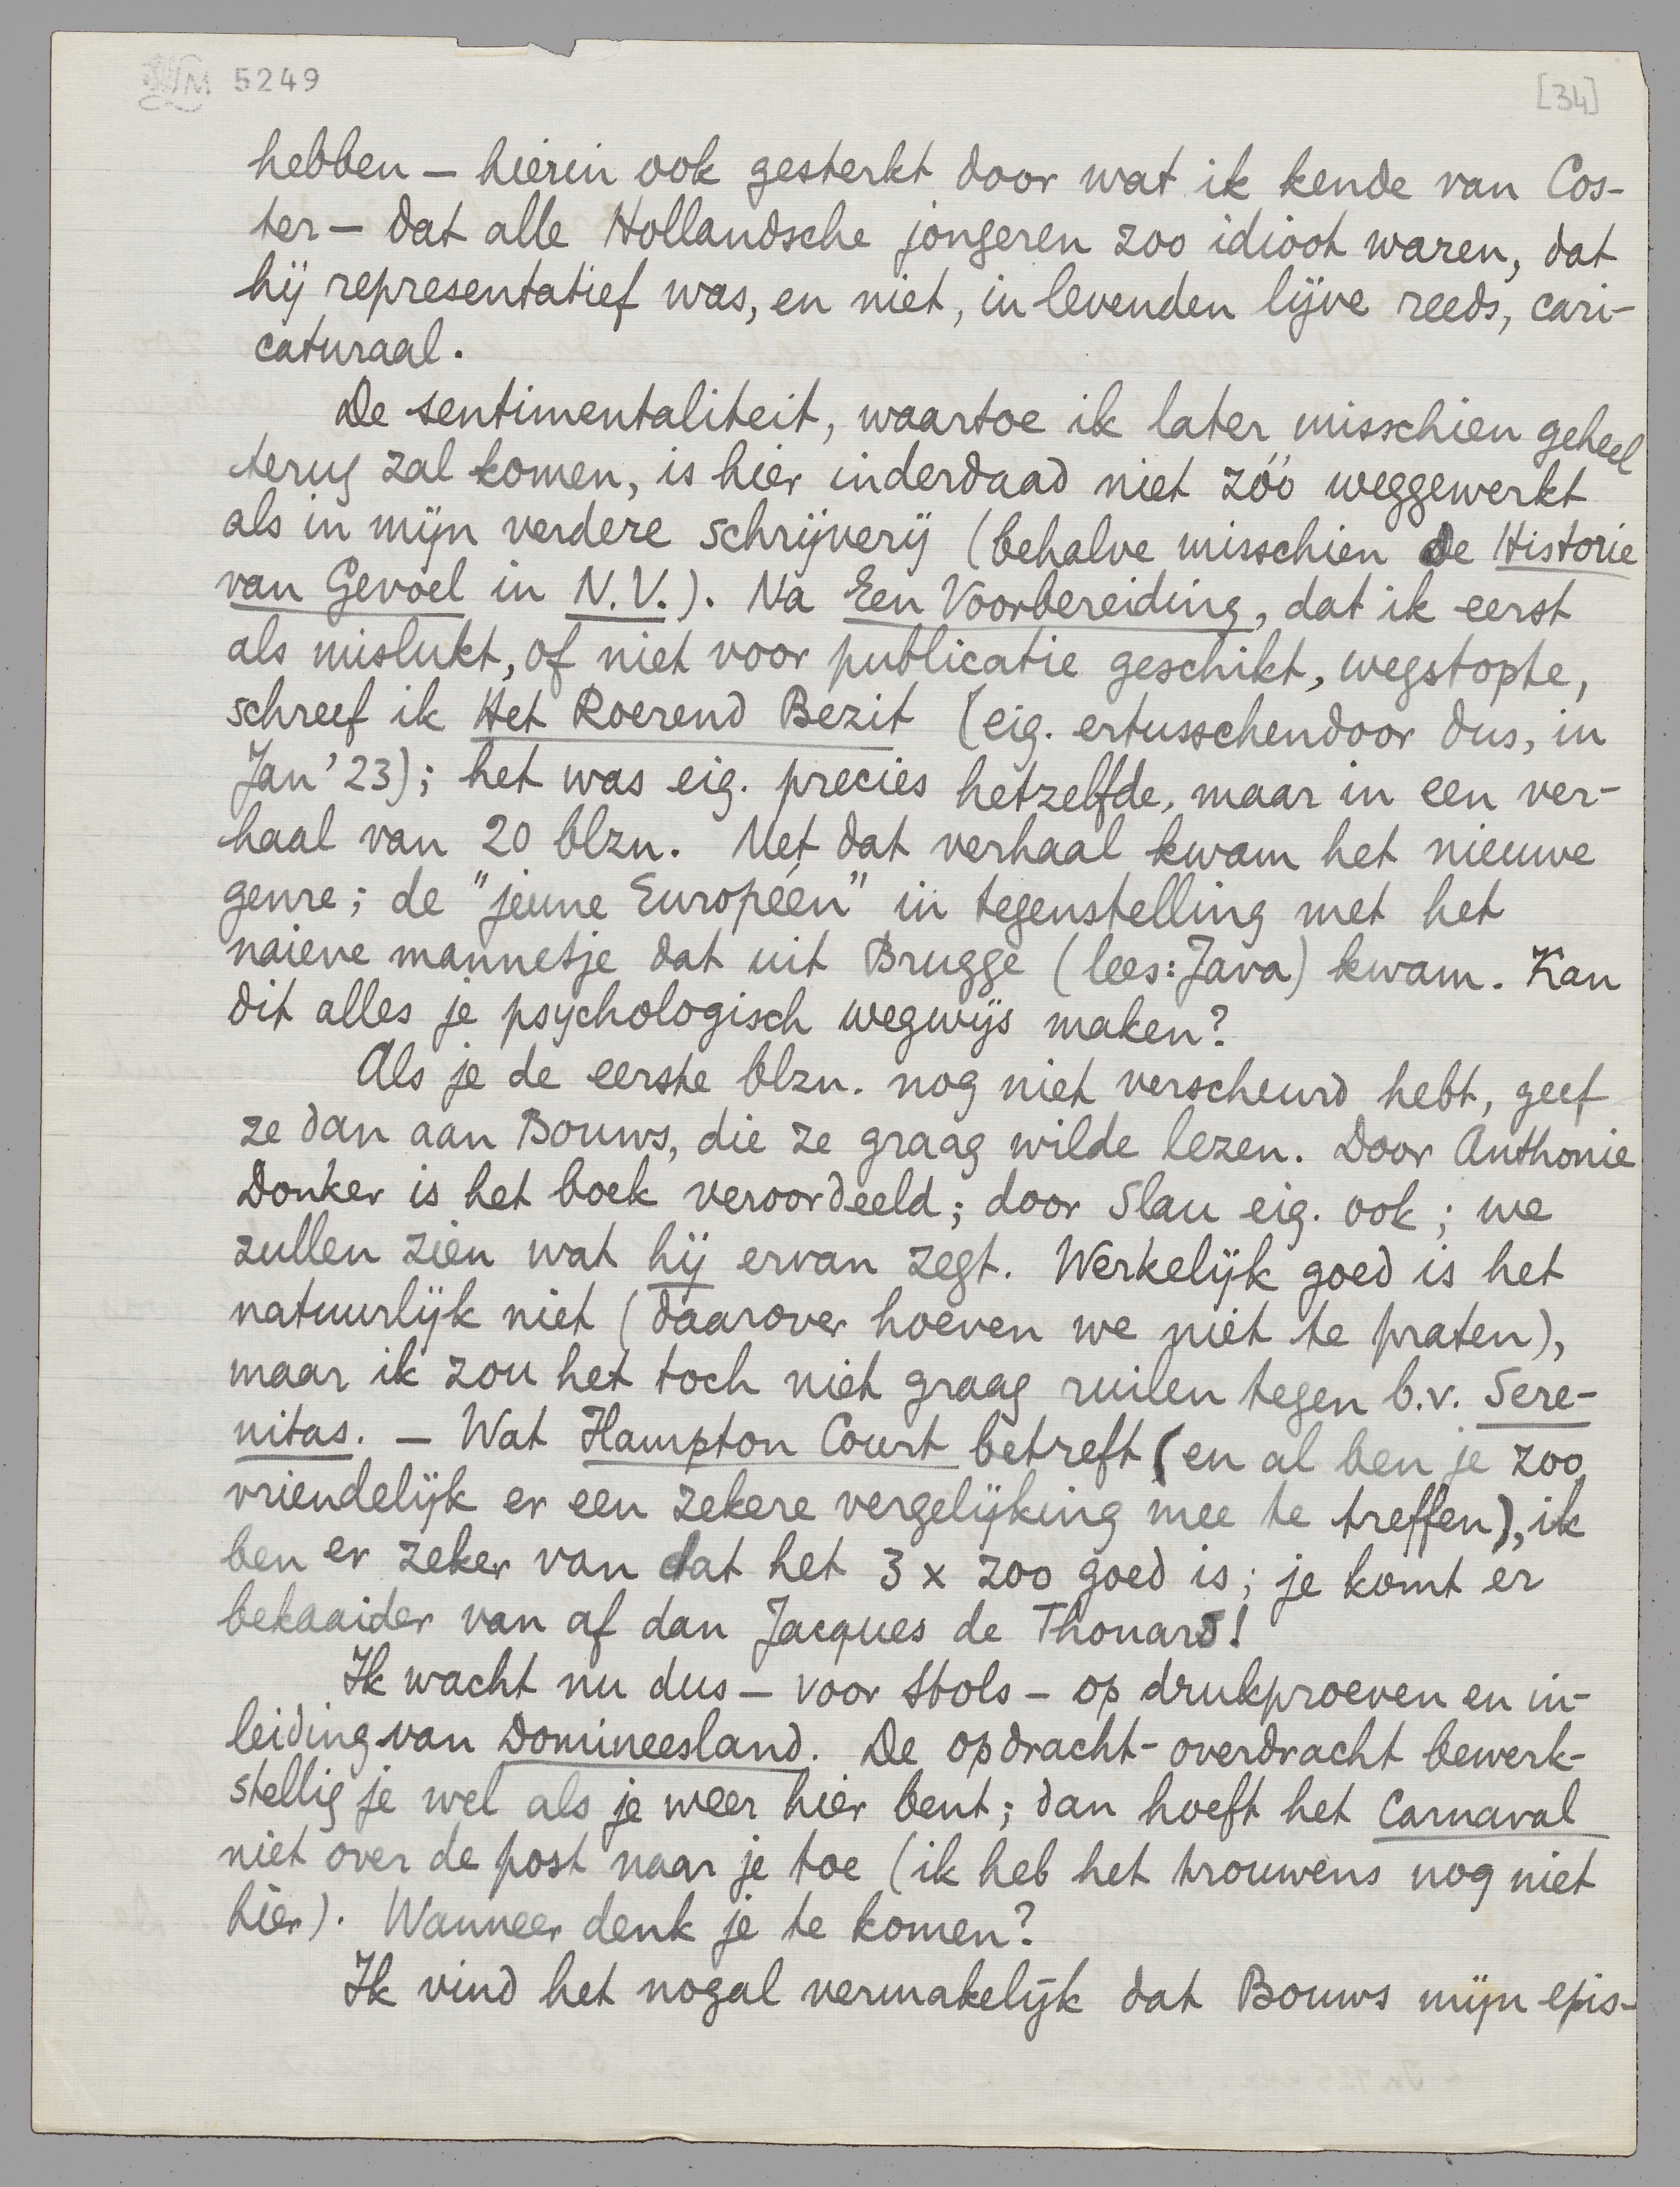 5249
[34]
hebben — hierin ook gesterkt door wat ik kende van Cos-
ter — dat alle Hollandsche jongeren zoo idioot waren, dat
hij representatief was, en niet, in levenden lijve reeds, cari-
caturaal.
De sentimentaliteit, waartoe ik later misschien geheel
terug zal komen, is hier inderdaad niet zóó weggewerkt
als in mijn verdere schrijverij (behalve misschien de Historie
van Gevoel in N.V.). Na Een Voorbereiding, dat ik eerst
als mislukt, of niet voor publicatie geschikt, wegstopte,
schreef ik Het Roerend Bezit (eig. ertusschendoor dus, in
Jan '23); het was eig. precies hetzelfde, maar in een ver-
haal van 20 blzn. Met dat verhaal kwam het nieuwe
genre; de "jeune Européen" in tegenstelling met het
naieve mannetje dat uit Brugge (lees: Java) kwam. Kan
dit alles je psychologisch wegwijs maken?
Als je de eerste blzn. nog niet verscheurd hebt, geef
ze dan aan Bouws, die ze graag wilde lezen. Door Anthonie
Donker is het boek veroordeeld; door Slau eig. ook; we
zullen zien wat hij ervan zegt. Werkelijk goed is het
natuurlijk niet (daarover hoeven we niet te praten),
maar ik zou het toch niet graag ruilen tegen b.v. Sere-
nitas. — Wat Hampton Court betreft (en al ben je zoo
vriendelijk er een zekere vergelijking mee te treffen), ik
ben er zeker van dat het 3 x zoo goed is; je komt er
bekaaider van af dan Jacques de Thouars!
Ik wacht nu dus — voor Stols — op drukproeven en in-
leiding van Domineesland. De opdracht-overdracht bewerk-
stellig je wel als je weer hier bent; dan hoeft het Carnaval
niet over de post naar je toe (ik heb het trouwens nog niet
hier). Wanneer denk je te komen?
Ik vind het nogal vermakelijk dat Bouws mijn epis-